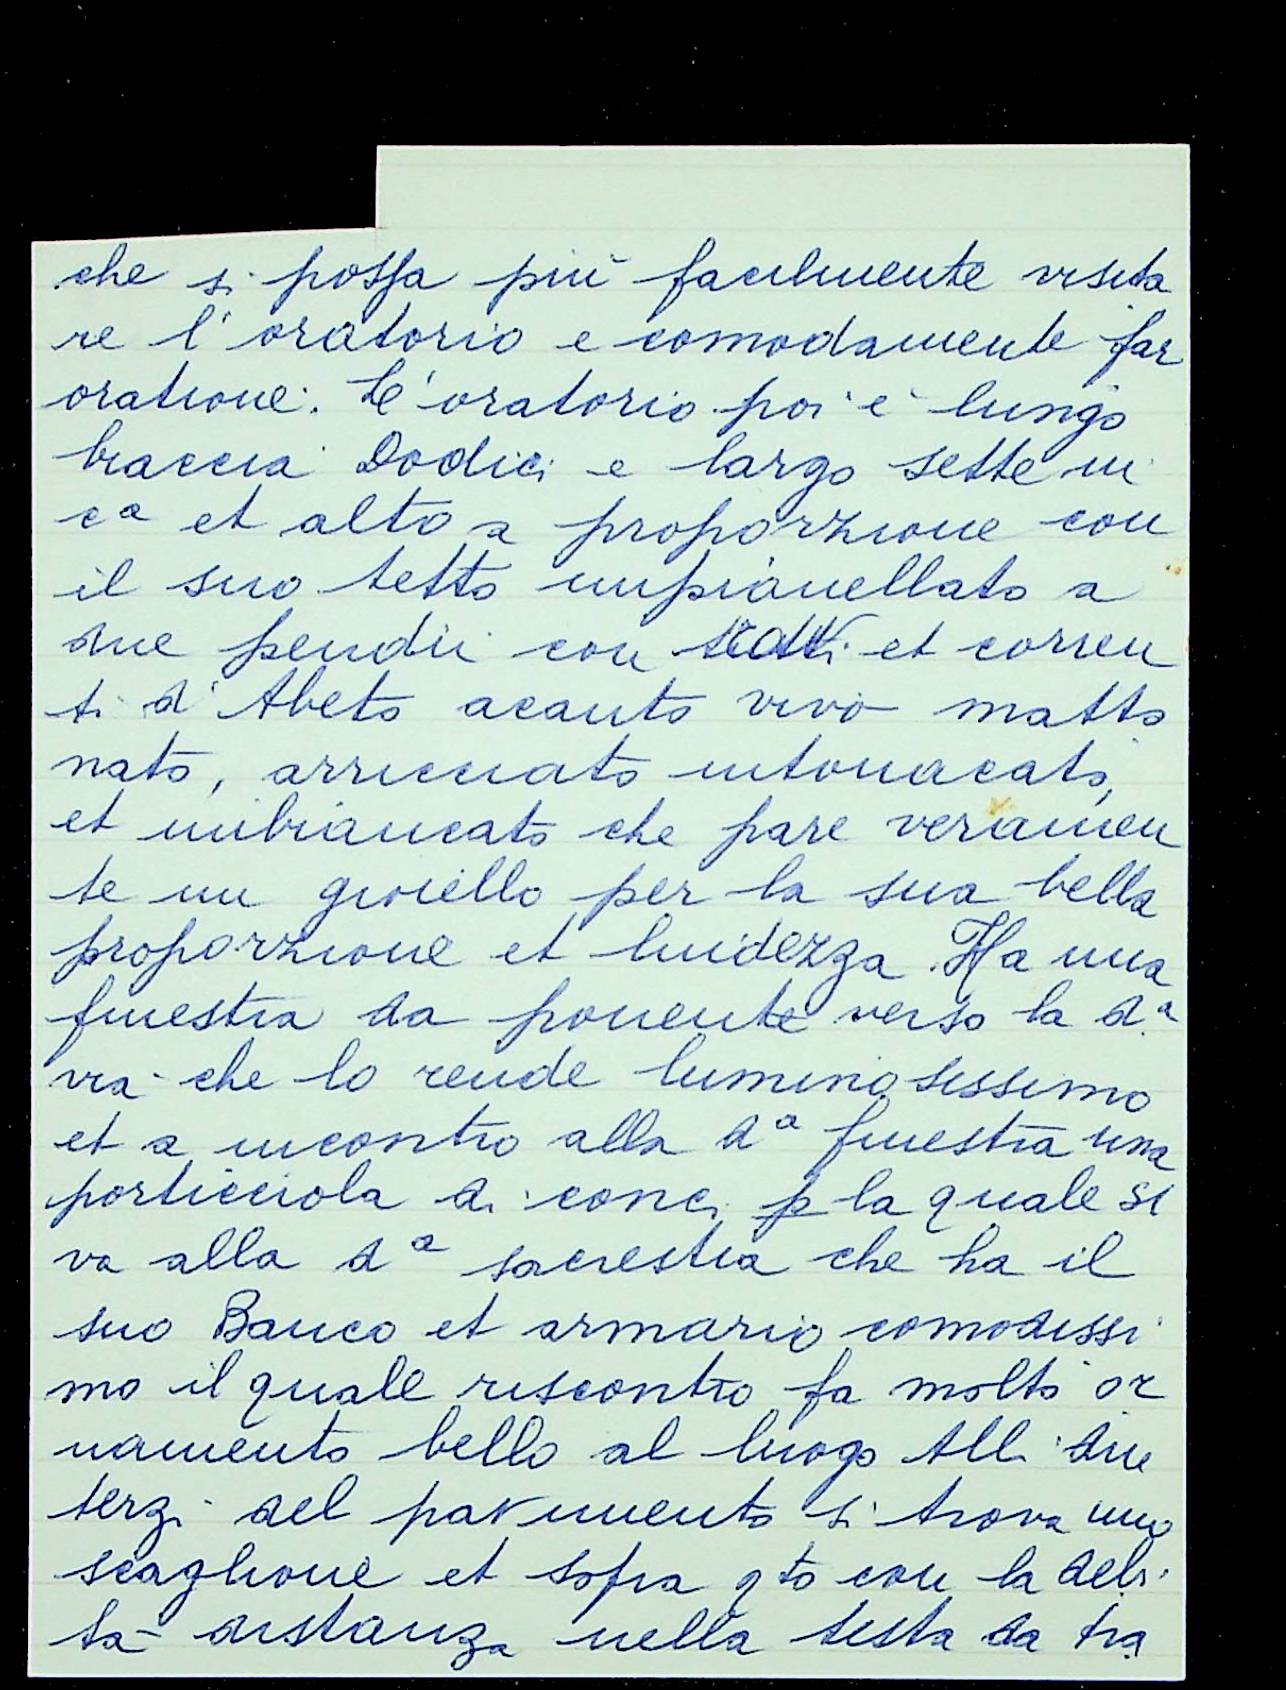 che si possa più facilmente visita
re l'oratorio e comodamente far
oratione. L'oratorio poi è lungo
braccia Dodici e largo sette in
cᵃ et alto a proporzione con
il suo tetto impianellato a
due pendii con et corren
ti d'Abeto acanto vivo matto
nato, arricciato intonacato,
et imbiancato che pare veramen
te un gioiello per la sua bella
proporzione et lucidezza. Ha una
finestra da ponente verso la d.ᵃ
via che lo rende luminosissimo
et a incontro alla dᵃ finestra una
porticciola di conci p la quale si
va alla dᵃ sacrestia che ha il
suo Banco et armario comodissi
mo il quale riscontro fa molto or
namento bello al luogo Alli due
terzi del pavimento si trova uno
scaglione et sopra qto con la debi
ta distanza nella testa da tra